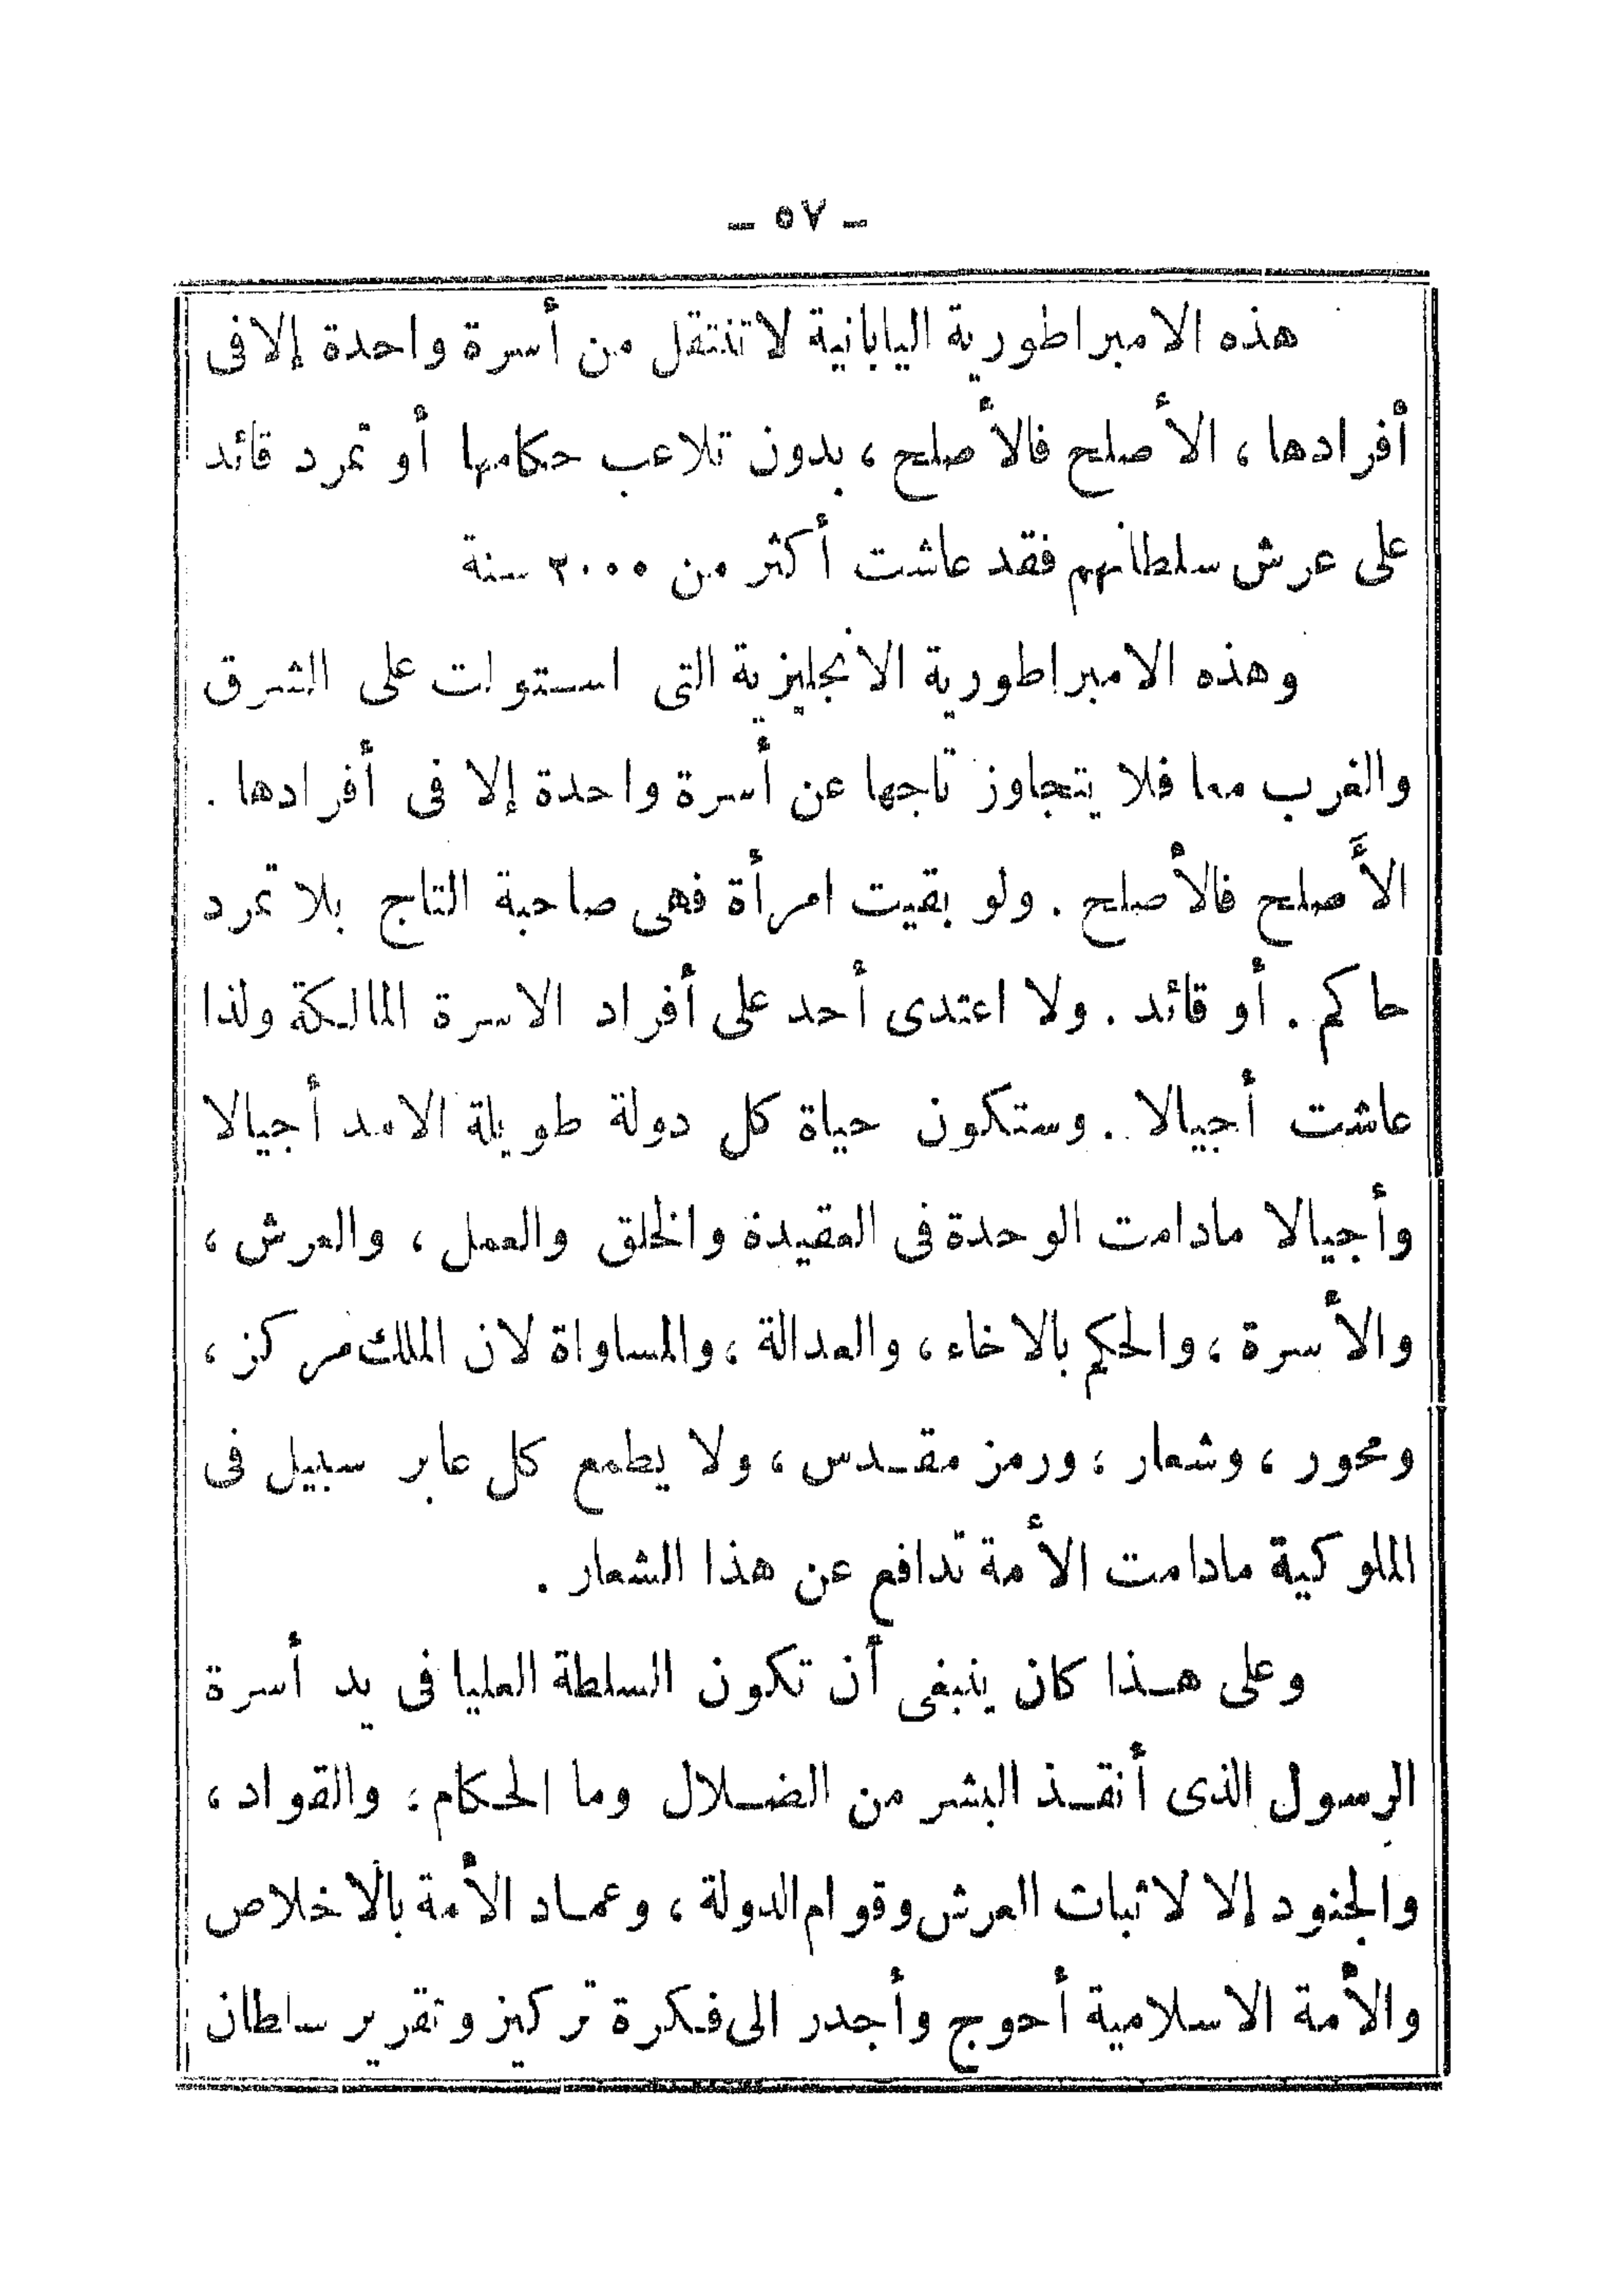 ـ ٥٧ ـ
هذه الامبراطورية اليابانية لاتنتقل من أسرة واحدة إلا فى
أفرادها ، الأصلح فالأصلح ، بدون تلاعب حكامها أو تمرد قائد
على عرش سلطانهم فقد عاشت أكثر من ٢٠٠٠ سنة
وهذه الامبراطورية الانجليزية التى استولت على الشرق
والغرب معا فلا يتجاوز تاجها عن أسرة واحدة إلا فى أفرادها .
الأَصلح فالأصلح . ولو بقيت امرأة فهى صاحبة التاج بلا تمرد
حاكم . أو قائد . ولا اعتدى أحد على أفراد الاسرة المالكة ولذا
عاشت أجيالا . وستكون حياة كل دولة طويلة الامد أجيالا
وأجيالا مادامت الوحدة فى العقيدة والخلق والعمل ، والعرش ،
والأسرة ، والحكم بالاخاء ، والعدالة ، والمساواة لان الملك مركز ،
ومحور ، وشعار ، ورمز مقـدس ، ولا يطمع كل عابر سبيل فى
الملوكية مادامت الأمة تدافع عن هذا الشعار .
وعلى هـذا كان ينبغى أن تكون السلطة العليا فى يد أسرة
الرسول الذى أنقـذ البشر من الضـلال وما الحـكام ، والقواد ،
والجنود إلا لاثبات العرش وقوام الدولة ، وعمـاد الأمة بالاخلاص
والأمة الاسلامية أحوج وأجدر الى فـكرة تركيز وتقرير سلطان